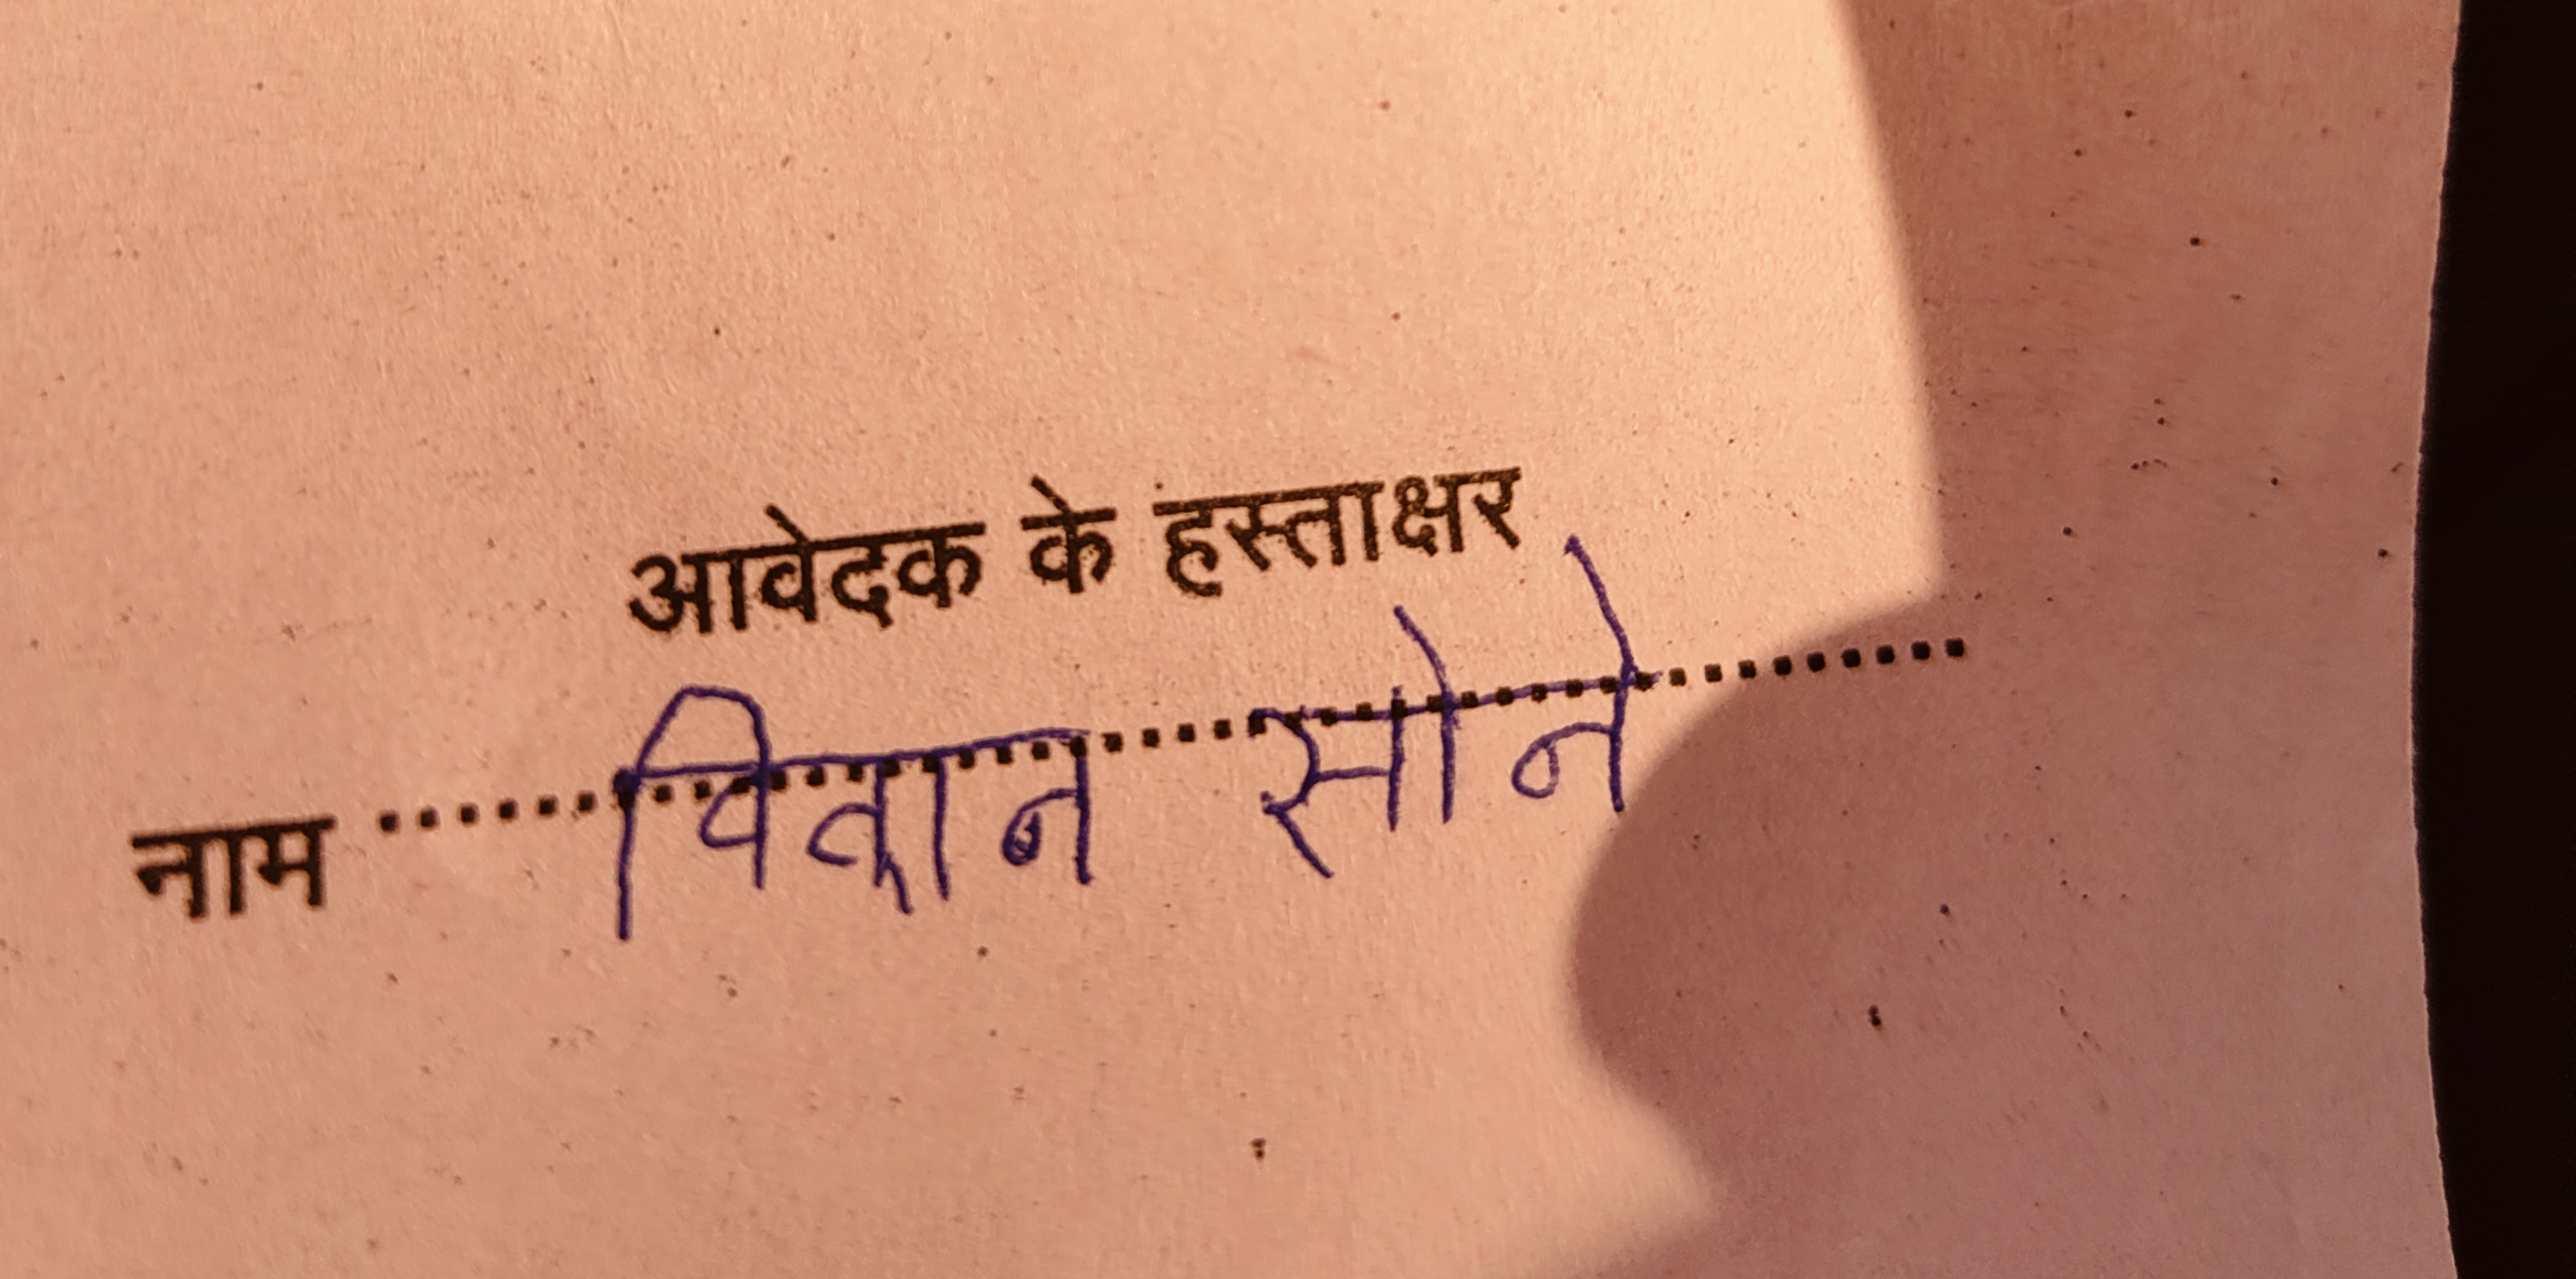 आवेदक के हस्ताक्षर
नाम .......... विद्वान सोने ..........